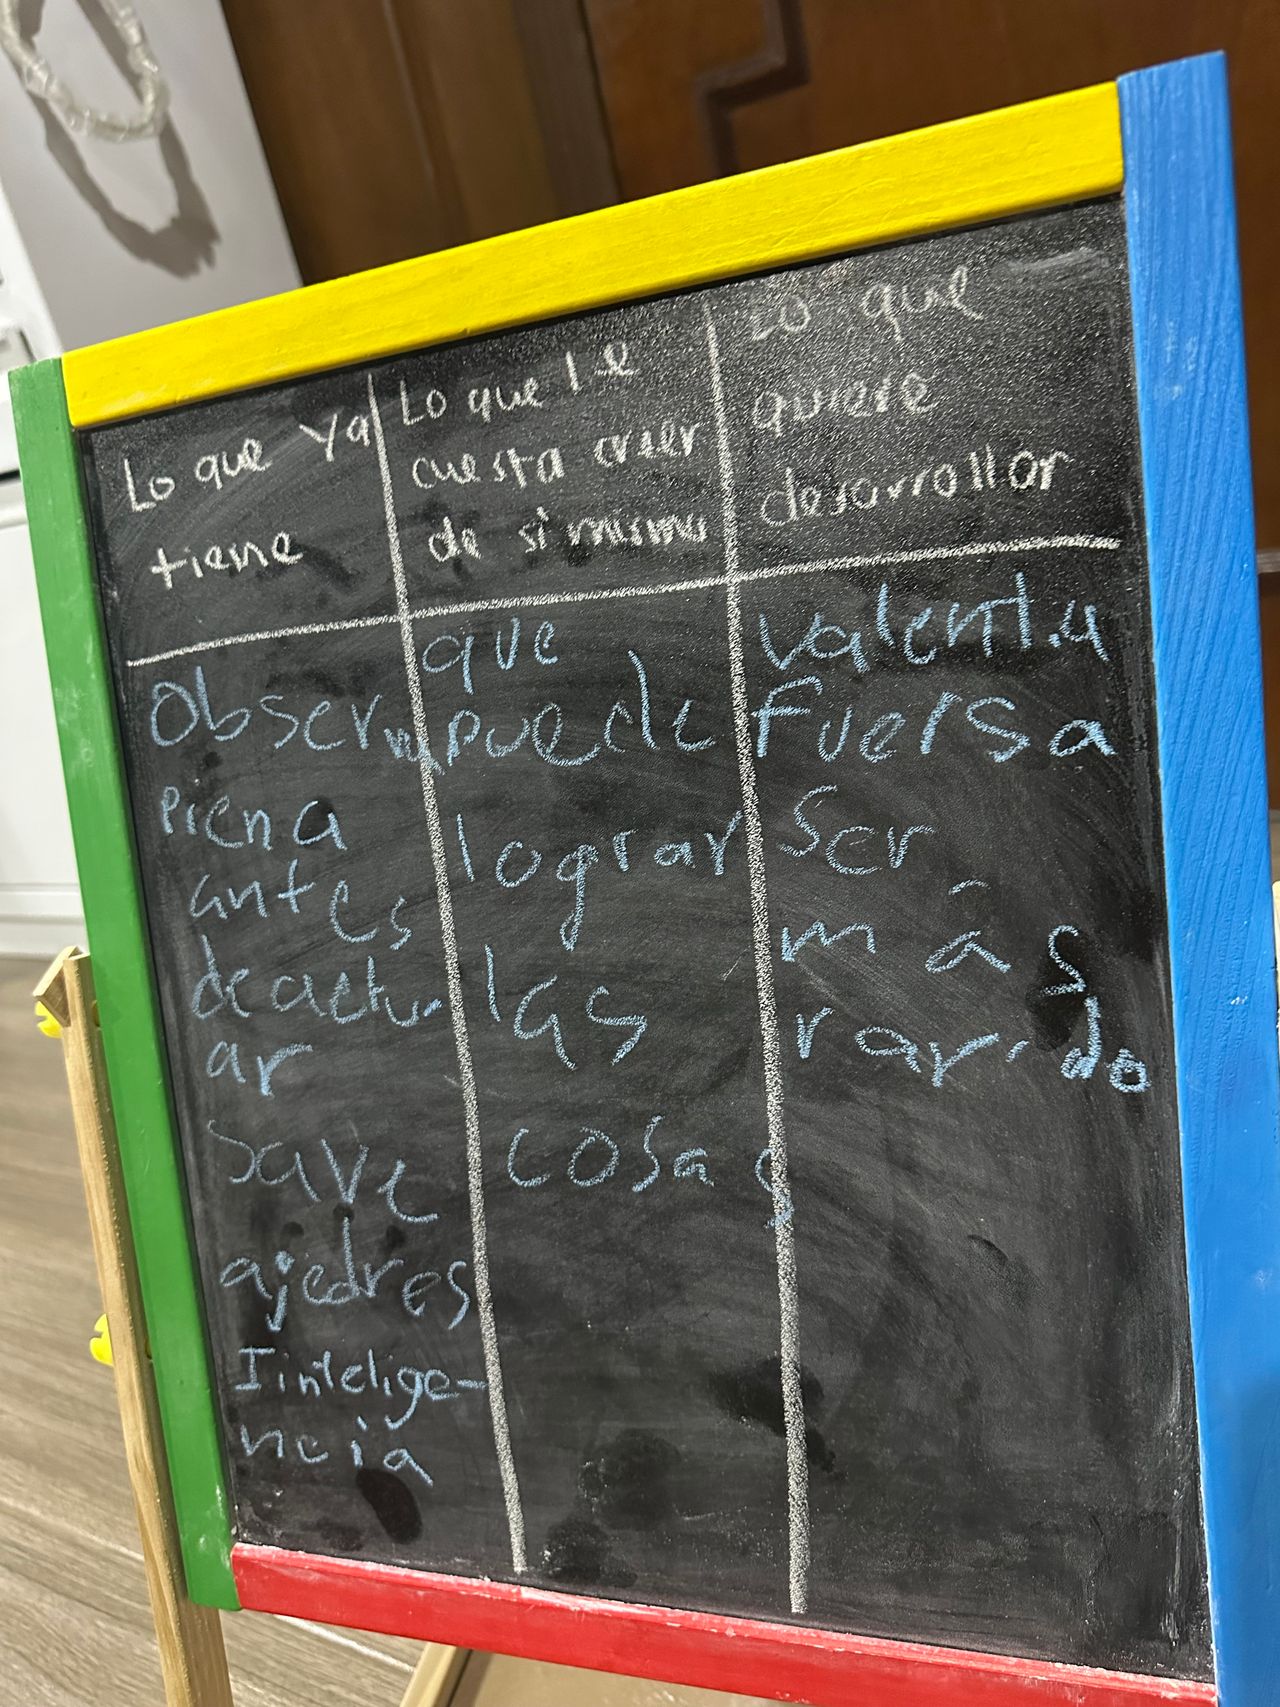 Lo que ya
tiene
Lo que le
cuesta creer
de si mismo
Lo que
quiere
desarrollar
Observa
piena
antes
de actu-
ar
save
ajedres
Iintelige-
ncia
que
puede
lograr
las
cosas
valentia
fuersa
ser
más
rarido